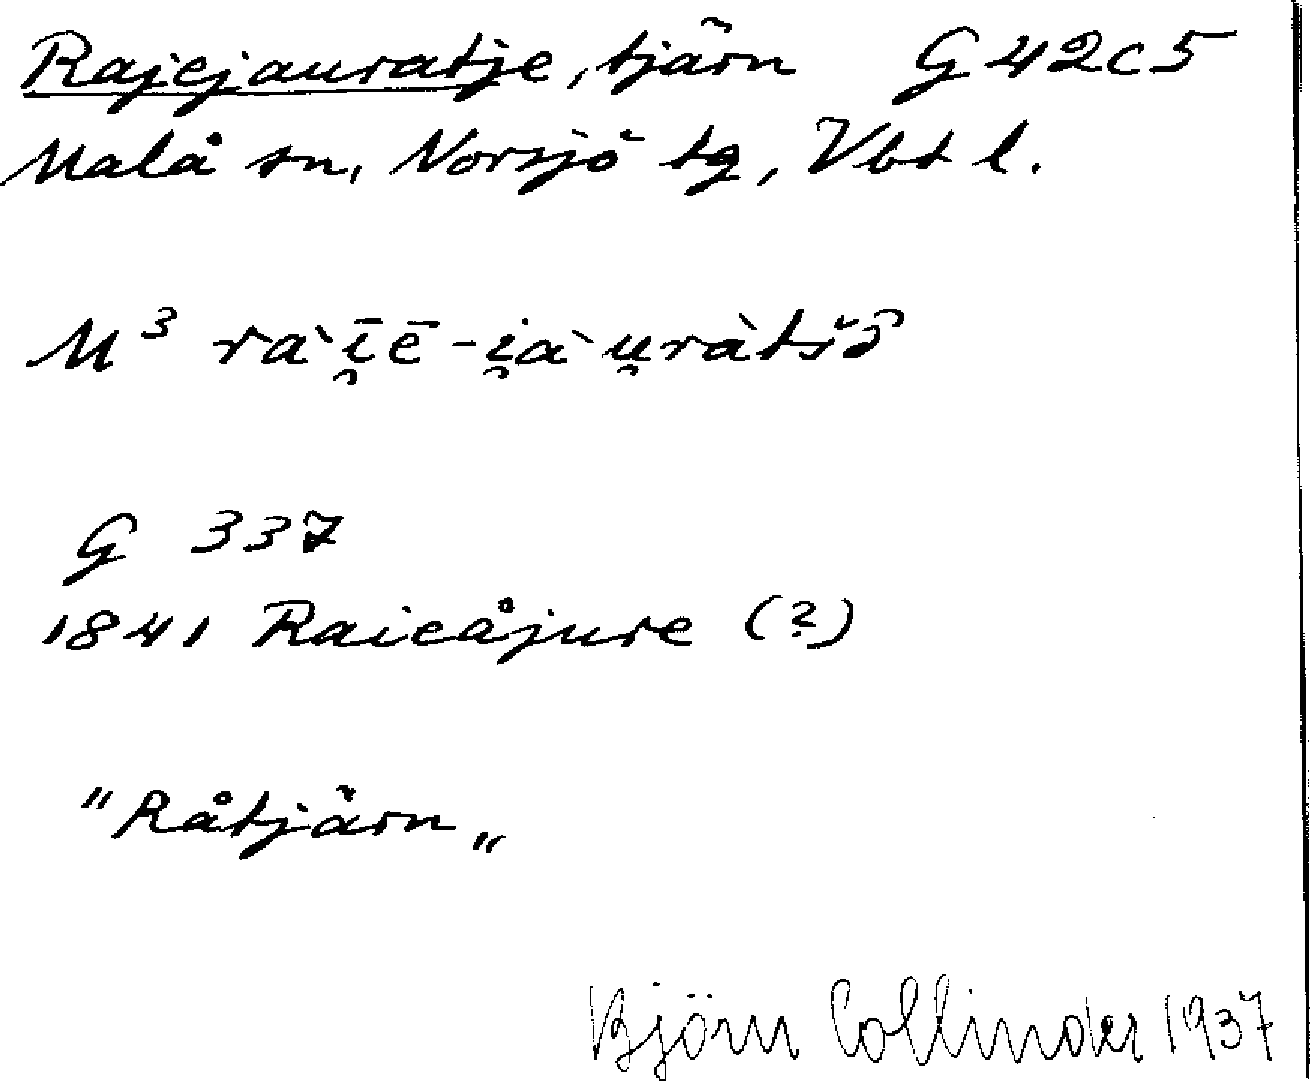 Rajejauratje, tjärn G42c5
Malå sn, Norsjö tg, Vbt l.
M³ rὰī̯ē-i̯ὰu̯ràtšə̂
G 337
1841 Raieåjure (?)
"Råtjärn„
Björn Collinder 1937